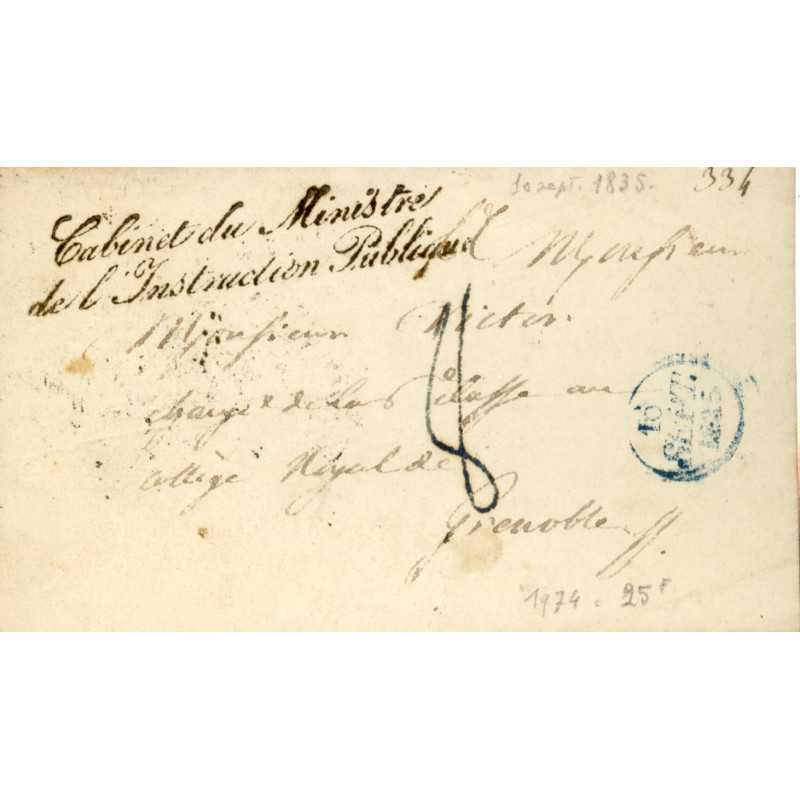 10 sept. 1835.
334
Cabinet du Ministre
de l'Instruction Publique
A Monsieur
Monsieur Victor
chargé de la 6 Classe au
Collège Royal de
Grenoble
8
10
SEPT.
1835
1974 = 25F